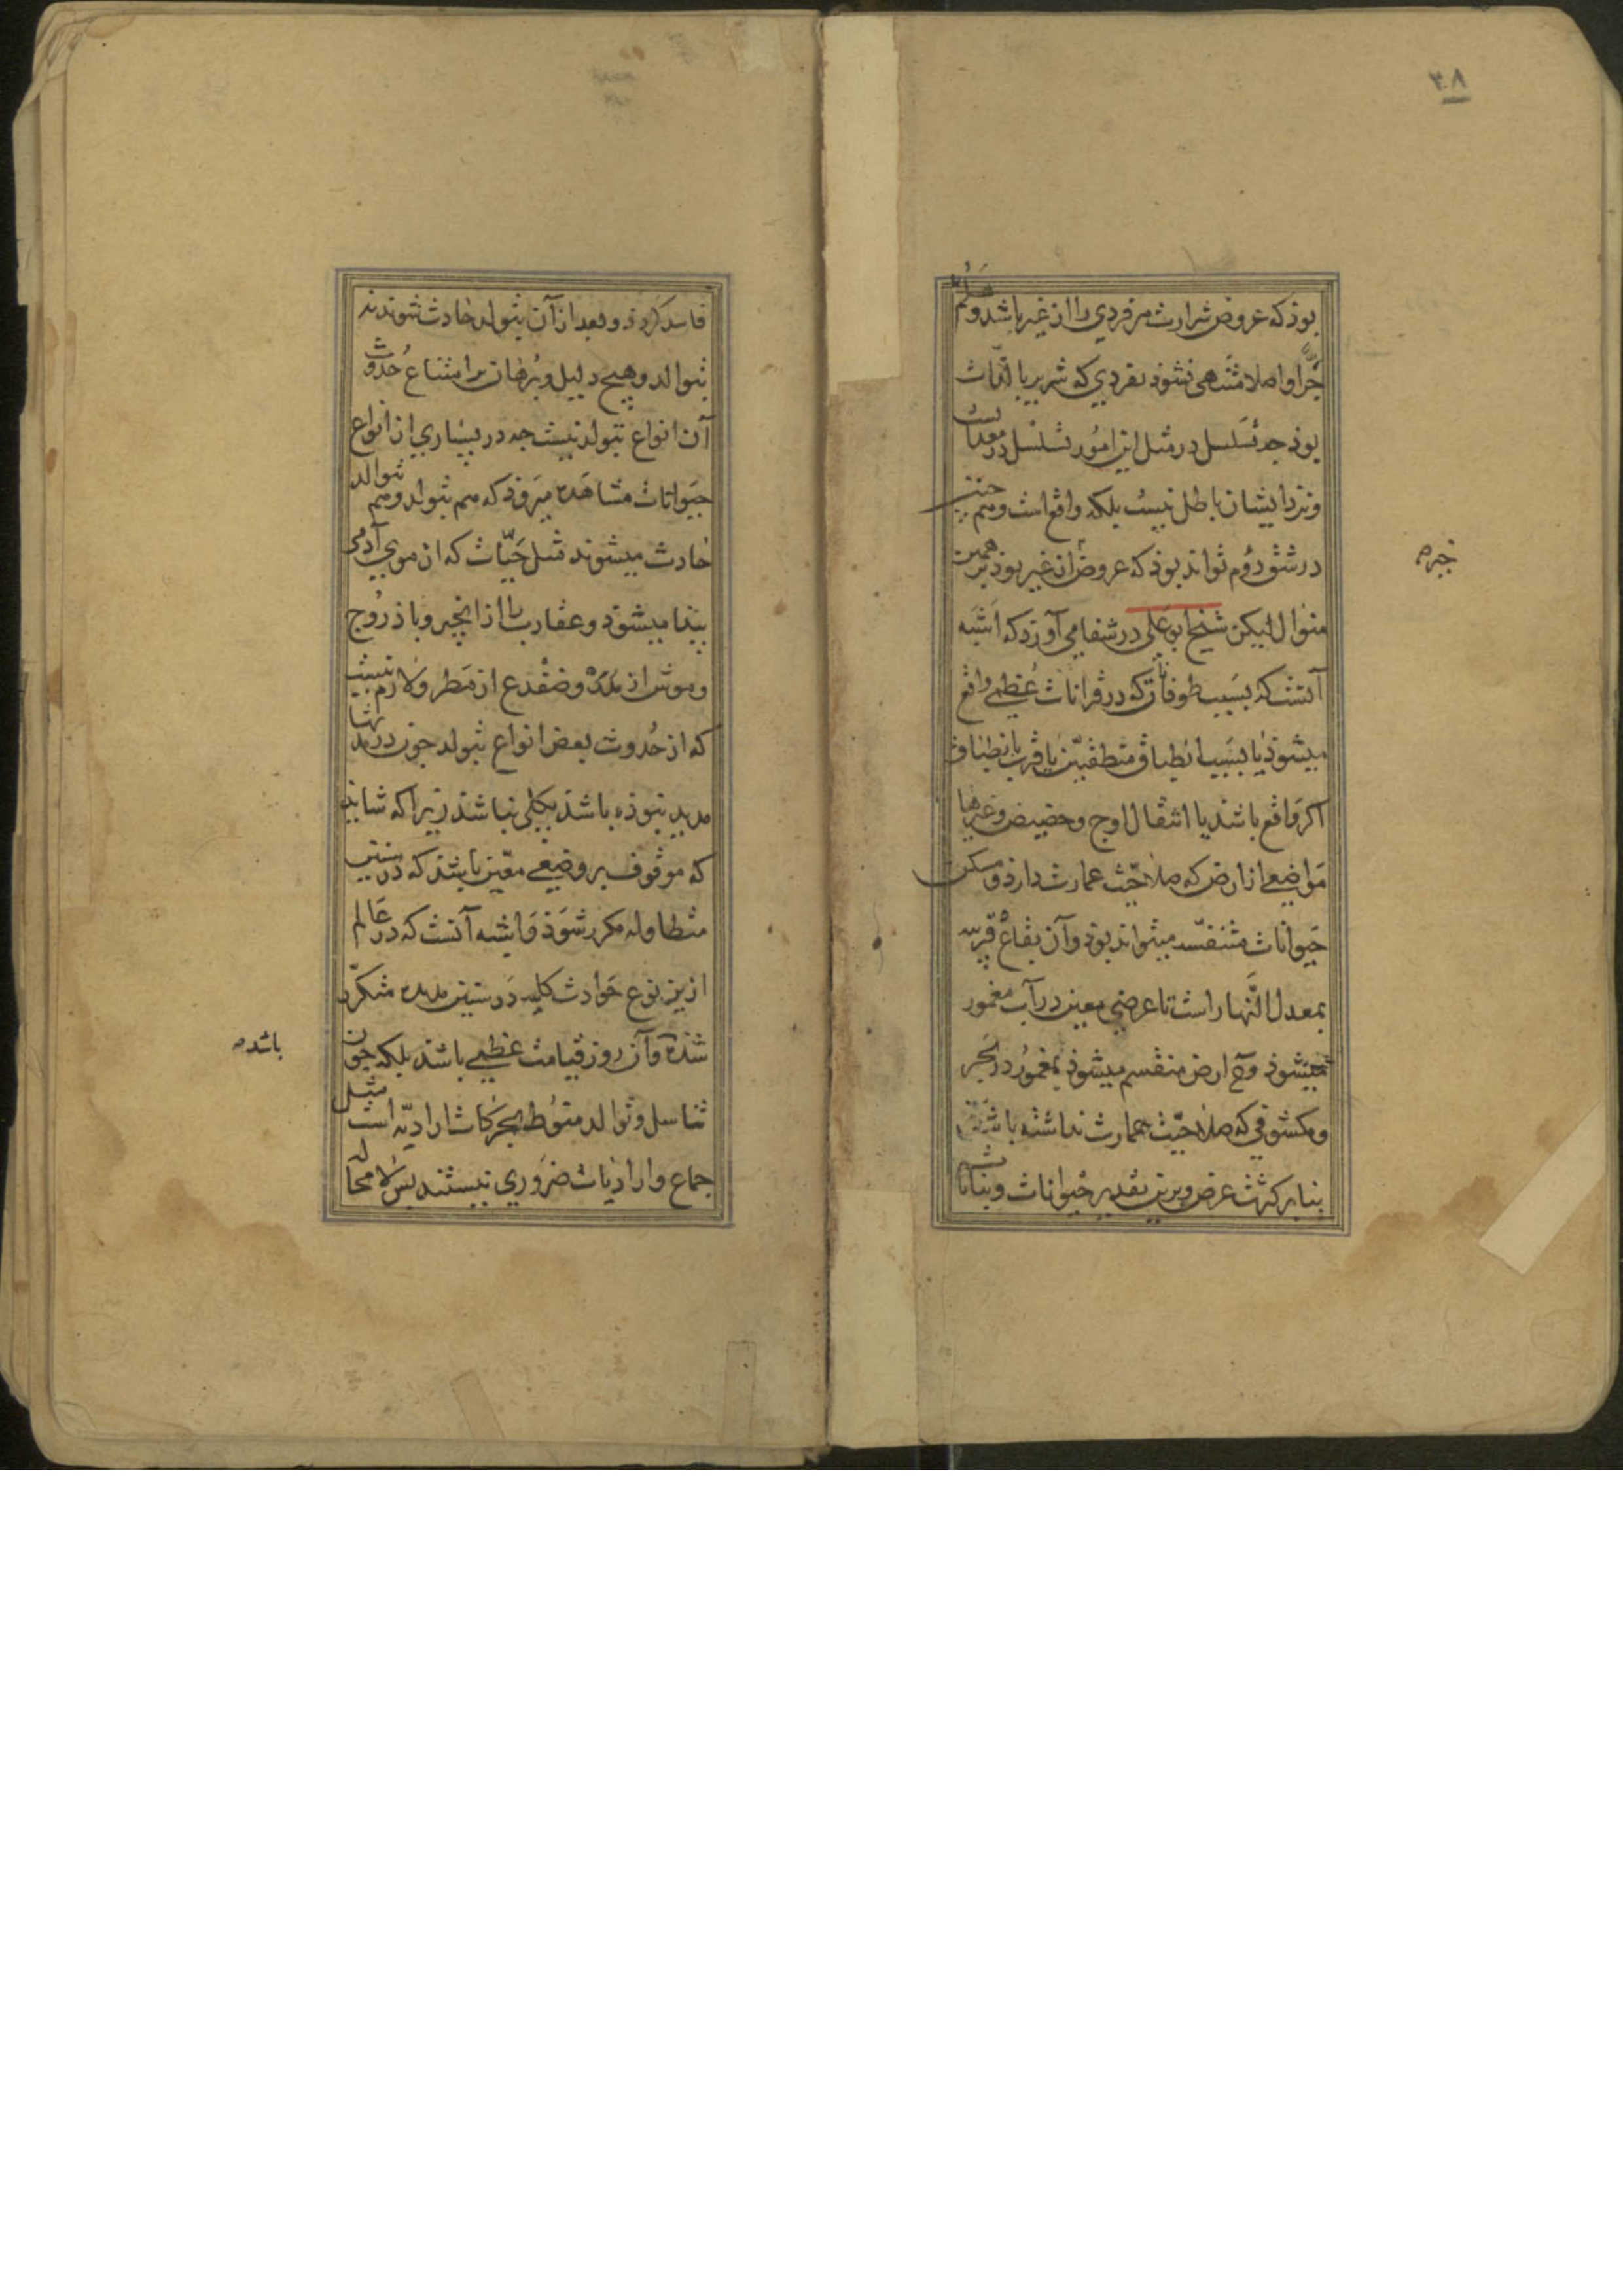 ۳۸
بوذ که عروض شرارت مر فردی را از غیر باشد و هلم
جرّا و اصلا منتهی نشوذ بفردی که شریر بالذّات
بوذ جه تسلسل در مثل این امور تسلسل در معدّات است
و نزد ایشان باطل نیست بلکه واقع است و هم جنین
در شق دوم تواند بوذ که عروض از غیر بوذ بر همین
منوال لیکن شیخ ابو علی در شفا می آورد که اشبه
آنست که بسبب طوفانات که در قرانات عظیمی واقع
میشوذ یا بسبب انطباق منطقتین یا قرب بانطباق
اکر واقع باشد یا انتقال اوج و حضیض و غیرها
مواضعی از ارض که صلاحیّت عمارت دارد و مسکن
حیوانات متنفّسه میتواند بوذ و آن بقاع قریبه
بمعدل النّهار است تا عرضی معین در آب مغمور
میشوذ و ارض منقسم میشوذ بمغمور در بحر
و مکشوفی که صلاحیّت عمارت نداشته باشد
بنا بر کثرت عرض و برین تقدیر حیوانات و نباتات
فاسد کردد و بعد از آن بتولد حادث شوند نه
بتوالد و هیچ دلیل و برهان بر امتناع حدوث
آن انواع بتولد نیست جه در بسیاری از انواع
حیوانات مشاهده میروذ که هم بتولد و هم بتوالد
حادث میشوند مثل حیّات که از موی آدمی
پیدا میشوذ و عقارب را از انجیر و باذروج
و موش از مدر و ضفدع از مطر و لازم نیست
که از حدوث بعض انواع بتولد جون در مدتها
مدید نبوذه باشد بکلی نباشد زیرا که شاید
که موقوف بر وضعی معیّن باشد که در سنین
متطاوله مکرر شوذ و اشبه آنست که در عالم
ازین نوع حوادث کلیه در سنین مدیده متکرّر
شده و آن روز قیامت عظیمی باشد بلکه جون
تناسل و توالد منوط بحرکات ارادیّه است مثل
جماع و ارادیات ضروری نیستند پس لا محاله
باشد